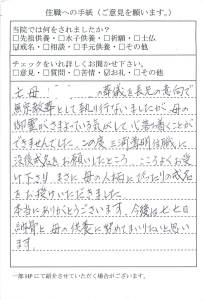 住職への手紙(ご意見を願います。)
当院では何をされましたか?
□先祖供養・□水子供養・□祈願・□土仏
☑戒名・□相談・□手元供養・□その他
チェックをいれ詳しくお聞かせ下さい。
□意見・□質問・□苦情・☑お礼・□その他
亡母 の葬儀を長兄の意向で
無宗教葬として執り行ないましたが 母の
御霊がさまよっている気がして 心落ち着くことが
できませんでした。この度 三浦尊明住職に
没後戒名をお願いしたところ、こころよくお受
け下さり、まさに母の人柄にぴったりの戒名を
お授けいただきました
本当にありがとうございます。今後は七七日
納骨と母の供養に努めてまいりたいと思い
ます。
一部HPにて紹介させていただく場合がございます。